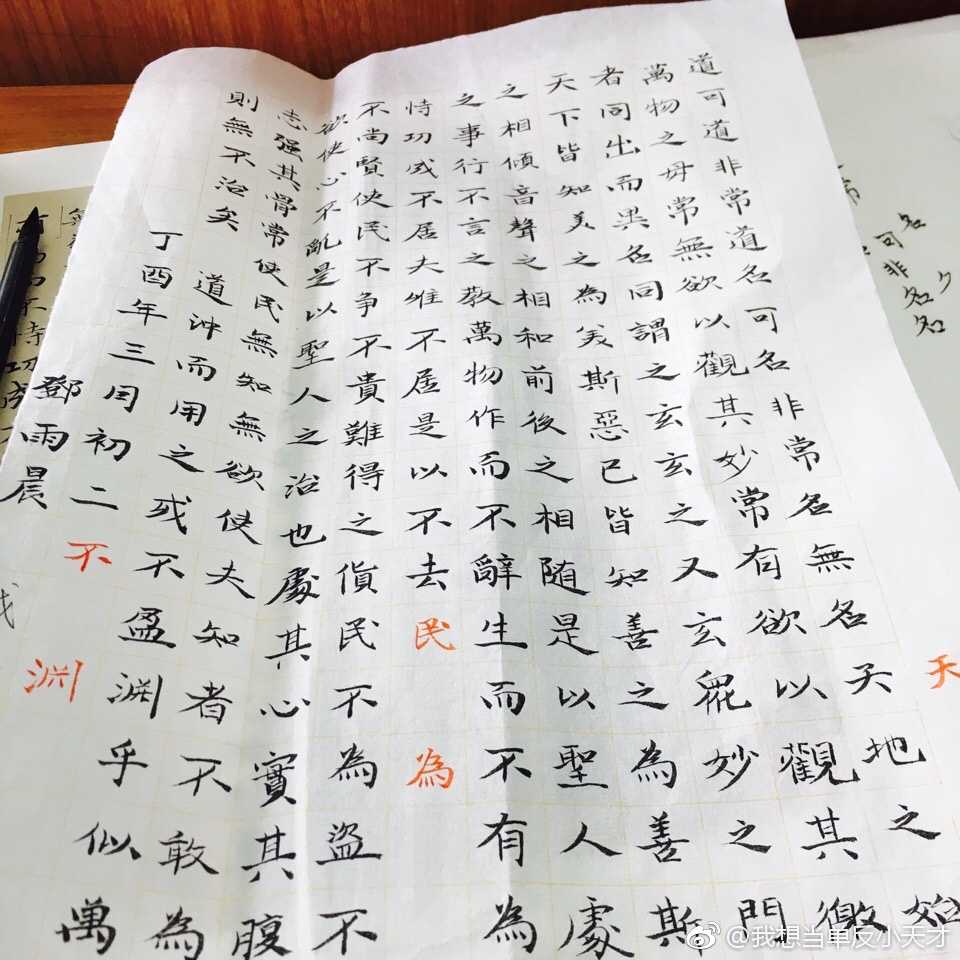 天
道可道非常道名可名非常名無名天地之始
萬物之母常無欲以觀其妙常有欲以觀其徼
者同出而異名同謂之玄玄之又玄眾妙之門
天下皆知美之為美斯惡已皆知善之為善斯
之相傾音聲之相和前後之相随是以聖人處
之事行不言之教萬物作而不辭生而不有為
恃功成不居夫唯不居是以不去民為
不尚賢使民不争不貴難得之貨民不為盜不
欲使心不亂是以聖人之治也處其心實其腹
志强其骨常使民無知無欲使夫知者不敢為
則無不治矣 道沖而用之或不盈渊乎似萬
丁酉年三月初二不
鄧雨晨
渊
常
可非名
名名
恃功成
@我想当单反小天才